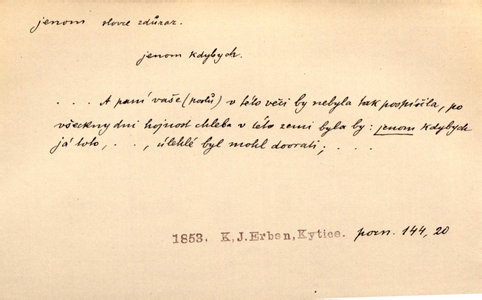 jenom slovce zdůraz.
jenom kdybych.
. . . . A paní vaše (portů) v této věci by nebyla tak pospíšila, po
všeckny dni hojnost chleba v této zemi byla by: jenom kdybych
já toto, . . , úlehlé byl mohl doorati; . . .
1853. K.J.Erben, Kytice. pozn. 144, 20